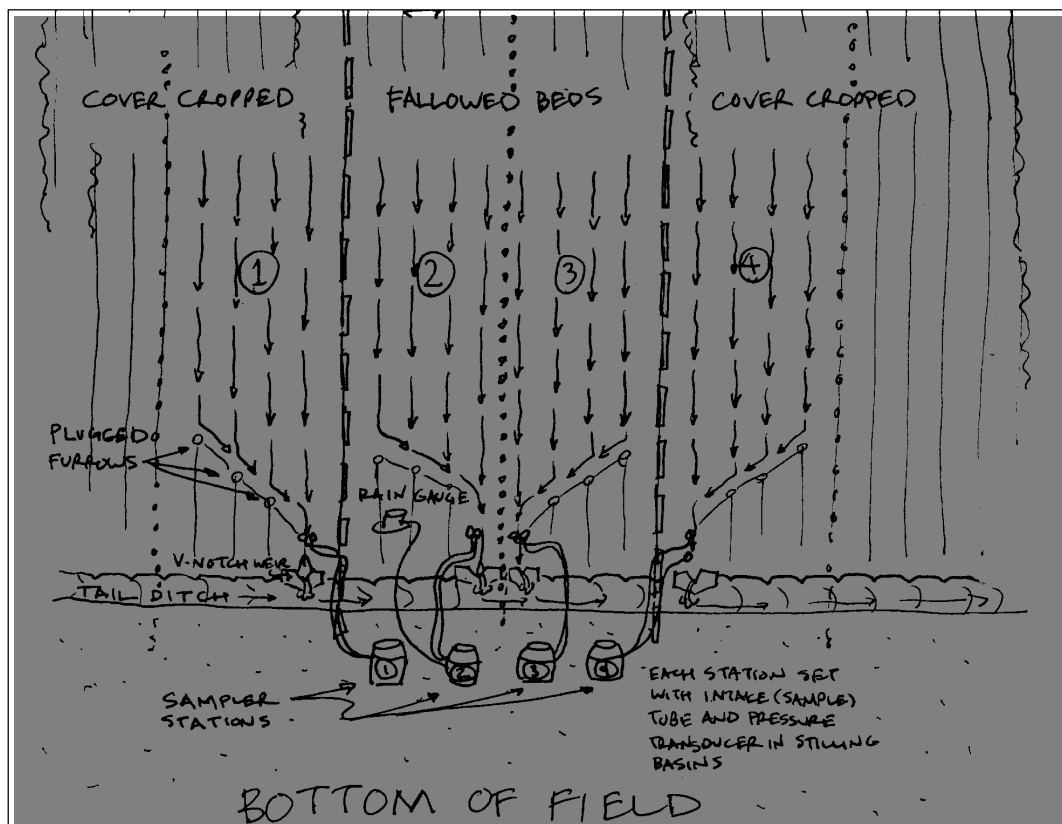 COVER CROPPED
FALLOWED BEDS
COVER CROPPED
1
2
3
4
PLUGGED
FURROWS
RAIN GAUGE
V-NOTCH WEIR
TAIL DITCH
1
2
3
4
SAMPLER
STATIONS
EACH STATION SET
WITH INTAKE (SAMPLE)
TUBE AND PRESSURE
TRANSDUCER IN STILLING
BASINS
BOTTOM OF FIELD